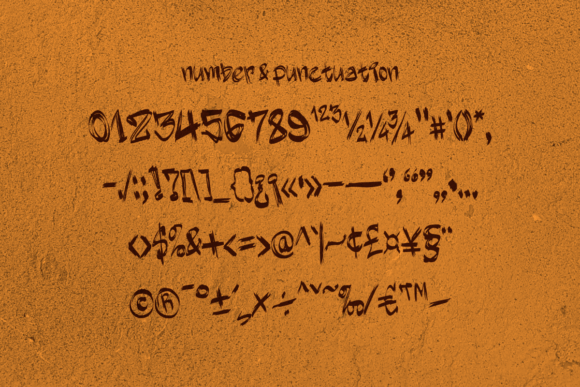 number & punctuation
0123456789¹²³½¼¾"#'()*,
-./:;!?[\]_{}¿¡«·»–—‘’‚“”„‚•…
‹›$%&+<=>@^`|~¢£¤¥§¨
©®¯°±´¸×÷ˆˇ˜‰⁄€™−